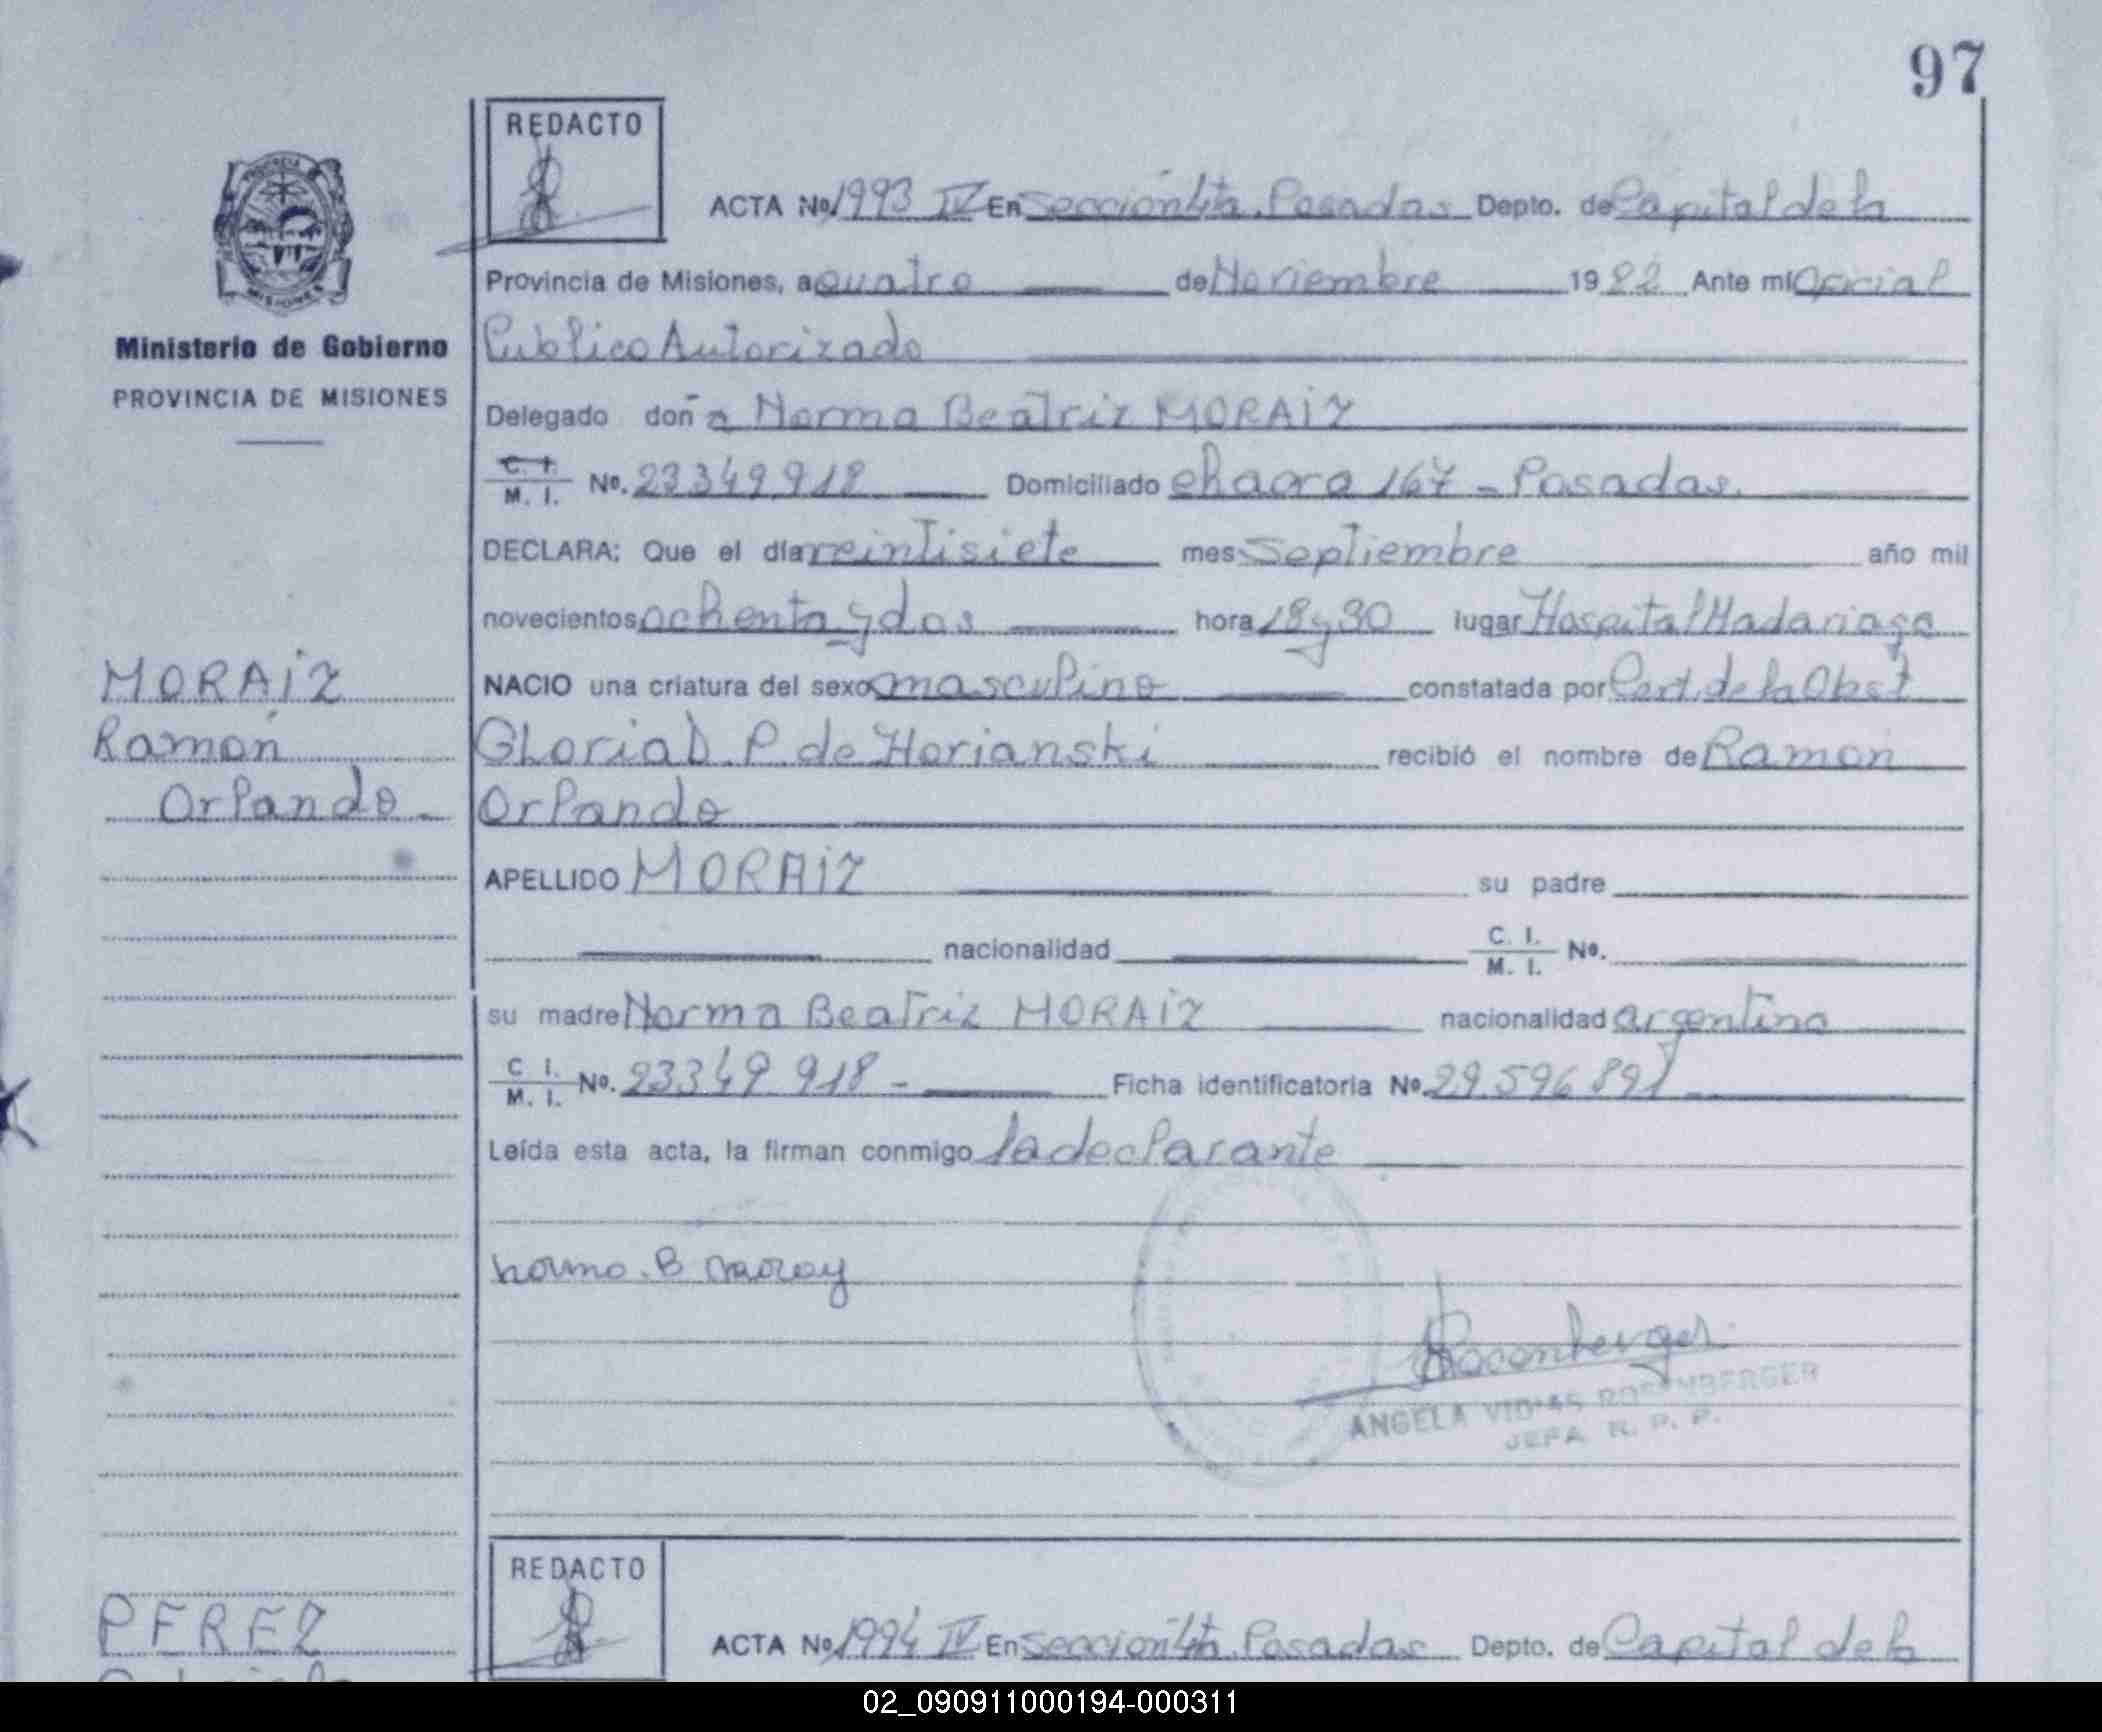 97
REDACTO
ACTA No. 1993 IV En Sección 4ta. Posadas Depto. de Capital de la
Provincia de Misiones, a cuatro de Noviembre 1982 Ante mí Oficial
Ministerio de Gobierno
Publico Autorizado
PROVINCIA DE MISIONES
Delegado doña Norma Beatriz MORAIZ
C. I. M. I. No. 23349918 Domiciliado chacra 167 - Posadas.
DECLARA: Que el día veintisiete mes Septiembre año mil
novecientos ochenta y dos hora 18 y 30 lugar Hospital Madariaga
MORAIZ
NACIO una criatura del sexo masculino constatada por Cert. de la Obst
Ramón
Gloria D. P. de Horianski recibió el nombre de Ramón
Orlando
Orlando
APELLIDO MORAIZ su padre
nacionalidad C. I. M. I. No.
su madre Norma Beatriz MORAIZ nacionalidad argentina
C. I. M. I. No. 23349 918 - Ficha identificatoria No. 29.596891
Leída esta acta, la firman conmigo la declarante
norma. B moray
Rosenberger
ANGELA ROSENBERGER
JEFA R. P. P.
REDACTO
PEREZ
ACTA No. 1994 IV En Sección 4ta. Posadas Depto. de Capital de la
02_090911000194-000311